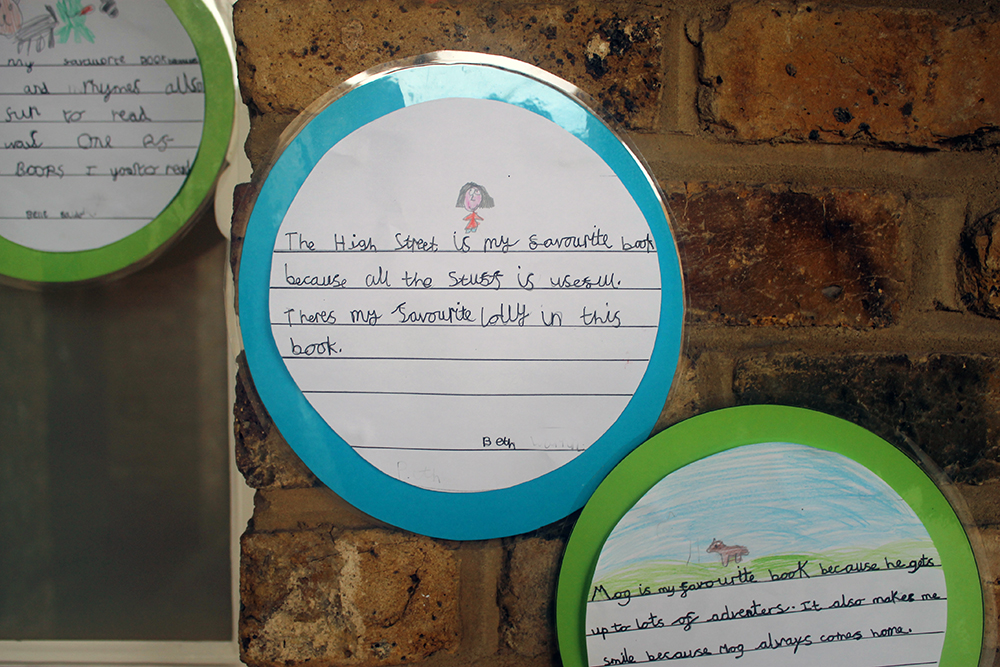 my favourite BOOK
and rhymes allso
fun to read
One of
BOORS I
The High Street is my favourite book
because all the stuff is usefull.
Theres my favourite lolly in this
book.
Beth
Mog is my favourite book because he gets
up to lots of adventers. It also makes me
smile because Mog always comes home.